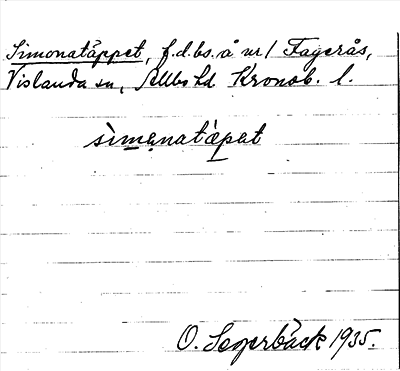 Simonatäppet, f.d.bs. å nr 1 Fagerås,
Vislanda sn, Allbo hd Kronob. l.
sìmənatä̀pət
O. Segerbäck 1935.